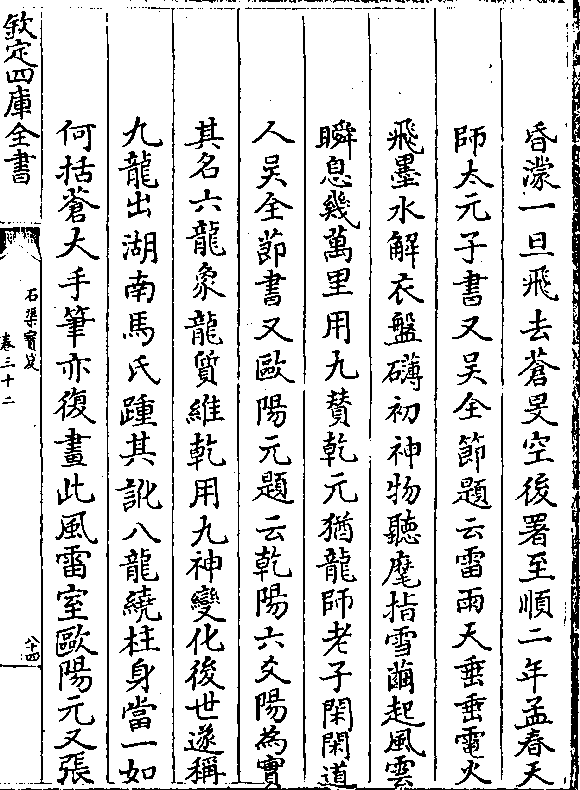 昏濛一旦飛去蒼旻空後署至順二年孟春天
師太元子書又吴全節題云雷雨天垂垂電火
飛墨水解衣盤礴初神物聽麾指雪繭起風雲
瞬息幾萬里用九賛乾元猶龍師老子閑閑道
人吴全節書又歐陽元題云乾陽六爻陽為實
其名六龍象龍質維乾用九神變化後世遂稱
九龍出湖南馬氏踵其訛八龍繞柱身當一如
何括蒼大手筆亦復畫此風雷室歐陽元又張
欽定四庫全書
石渠寳笈
卷三十二
八十四